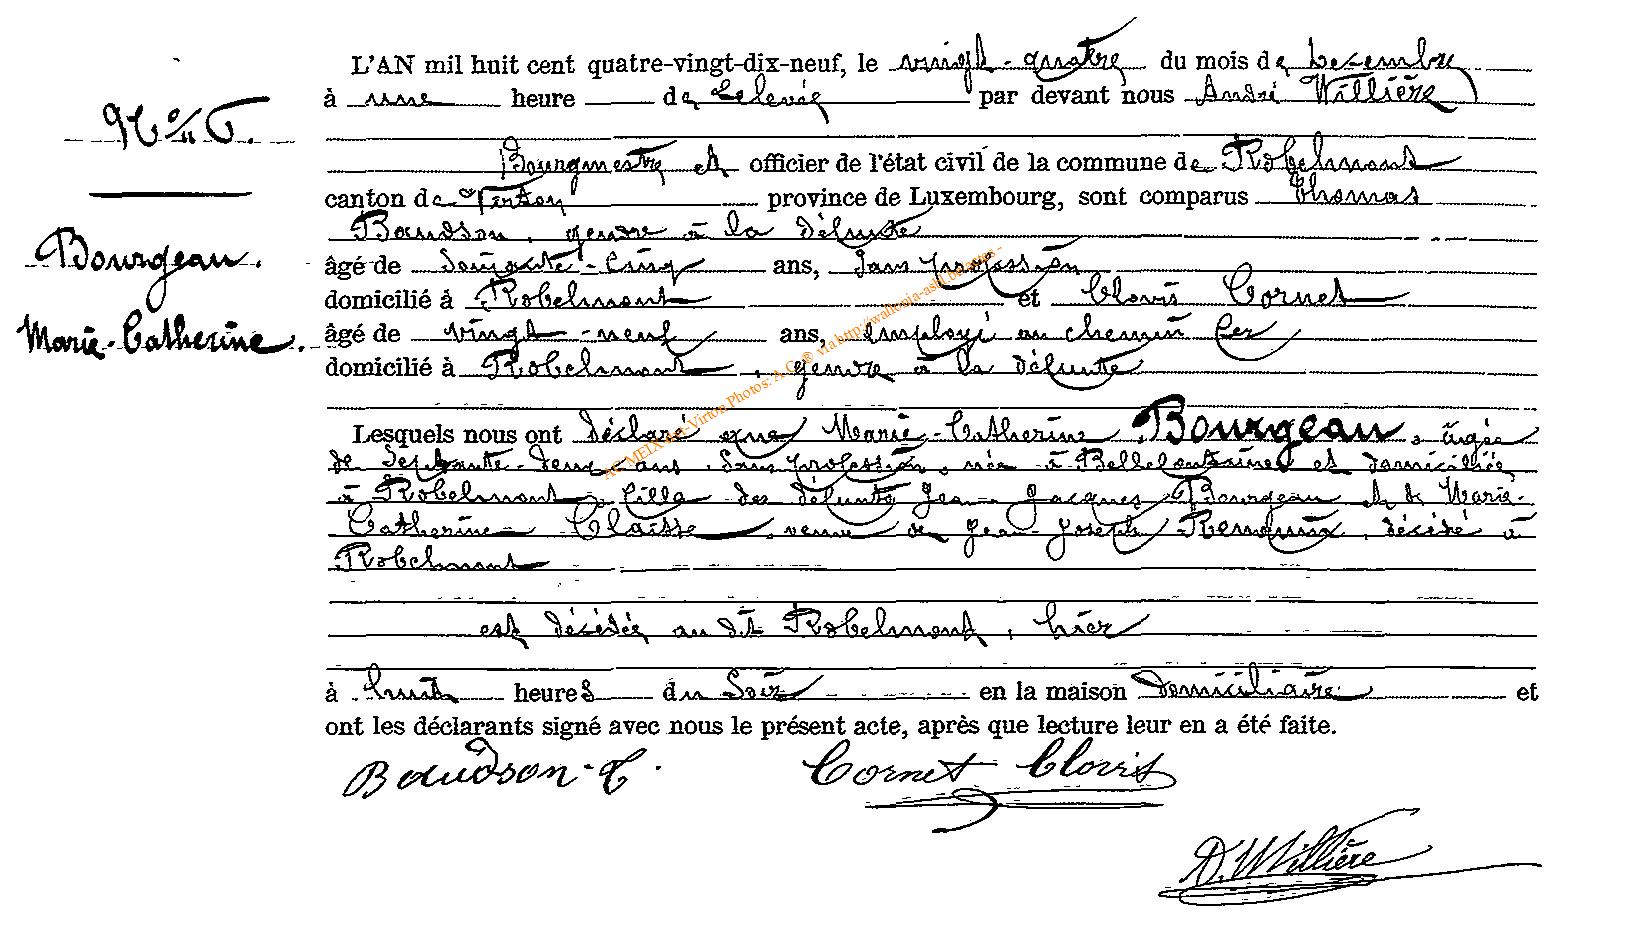 L'AN mil huit cent quatre-vingt-dix-neuf, le vingt-quatre du mois de Décembre
à une heure de relevée par devant nous André Willière
Bourgmestre et officier de l'état civil de la commune de Robelmont
canton de Virton province de Luxembourg, sont comparus Thomas
Baudson, gendre à la défunte
âgé de soixante-cinq ans, sans profession
domicilié à Robelmont et Clovis Cornet
âgé de vingt-neuf ans, employé au chemin fer
domicilié à Robelmont, gendre à la défunte
Lesquels nous ont déclaré que Marie-Catherine Bourgeau, âgée
de septante-deux ans, sans profession, née à Bellefontaine et domiciliée
à Robelmont, fille des défunts Jean-Jacques Bourgeau et de Marie-
Catherine Claisse, veuve de Jean-Joseph, décédé à
Robelmont
est décédée au dit Robelmont, hier
à huit heures du soir en la maison domiciliaire et
ont les déclarants signé avec nous le présent acte, après que lecture leur en a été faite.
Baudson-T.
Cornet Clovis
A. Willière
Bourgeau.
Marie-Catherine.
via http://wallonia-asbl.be